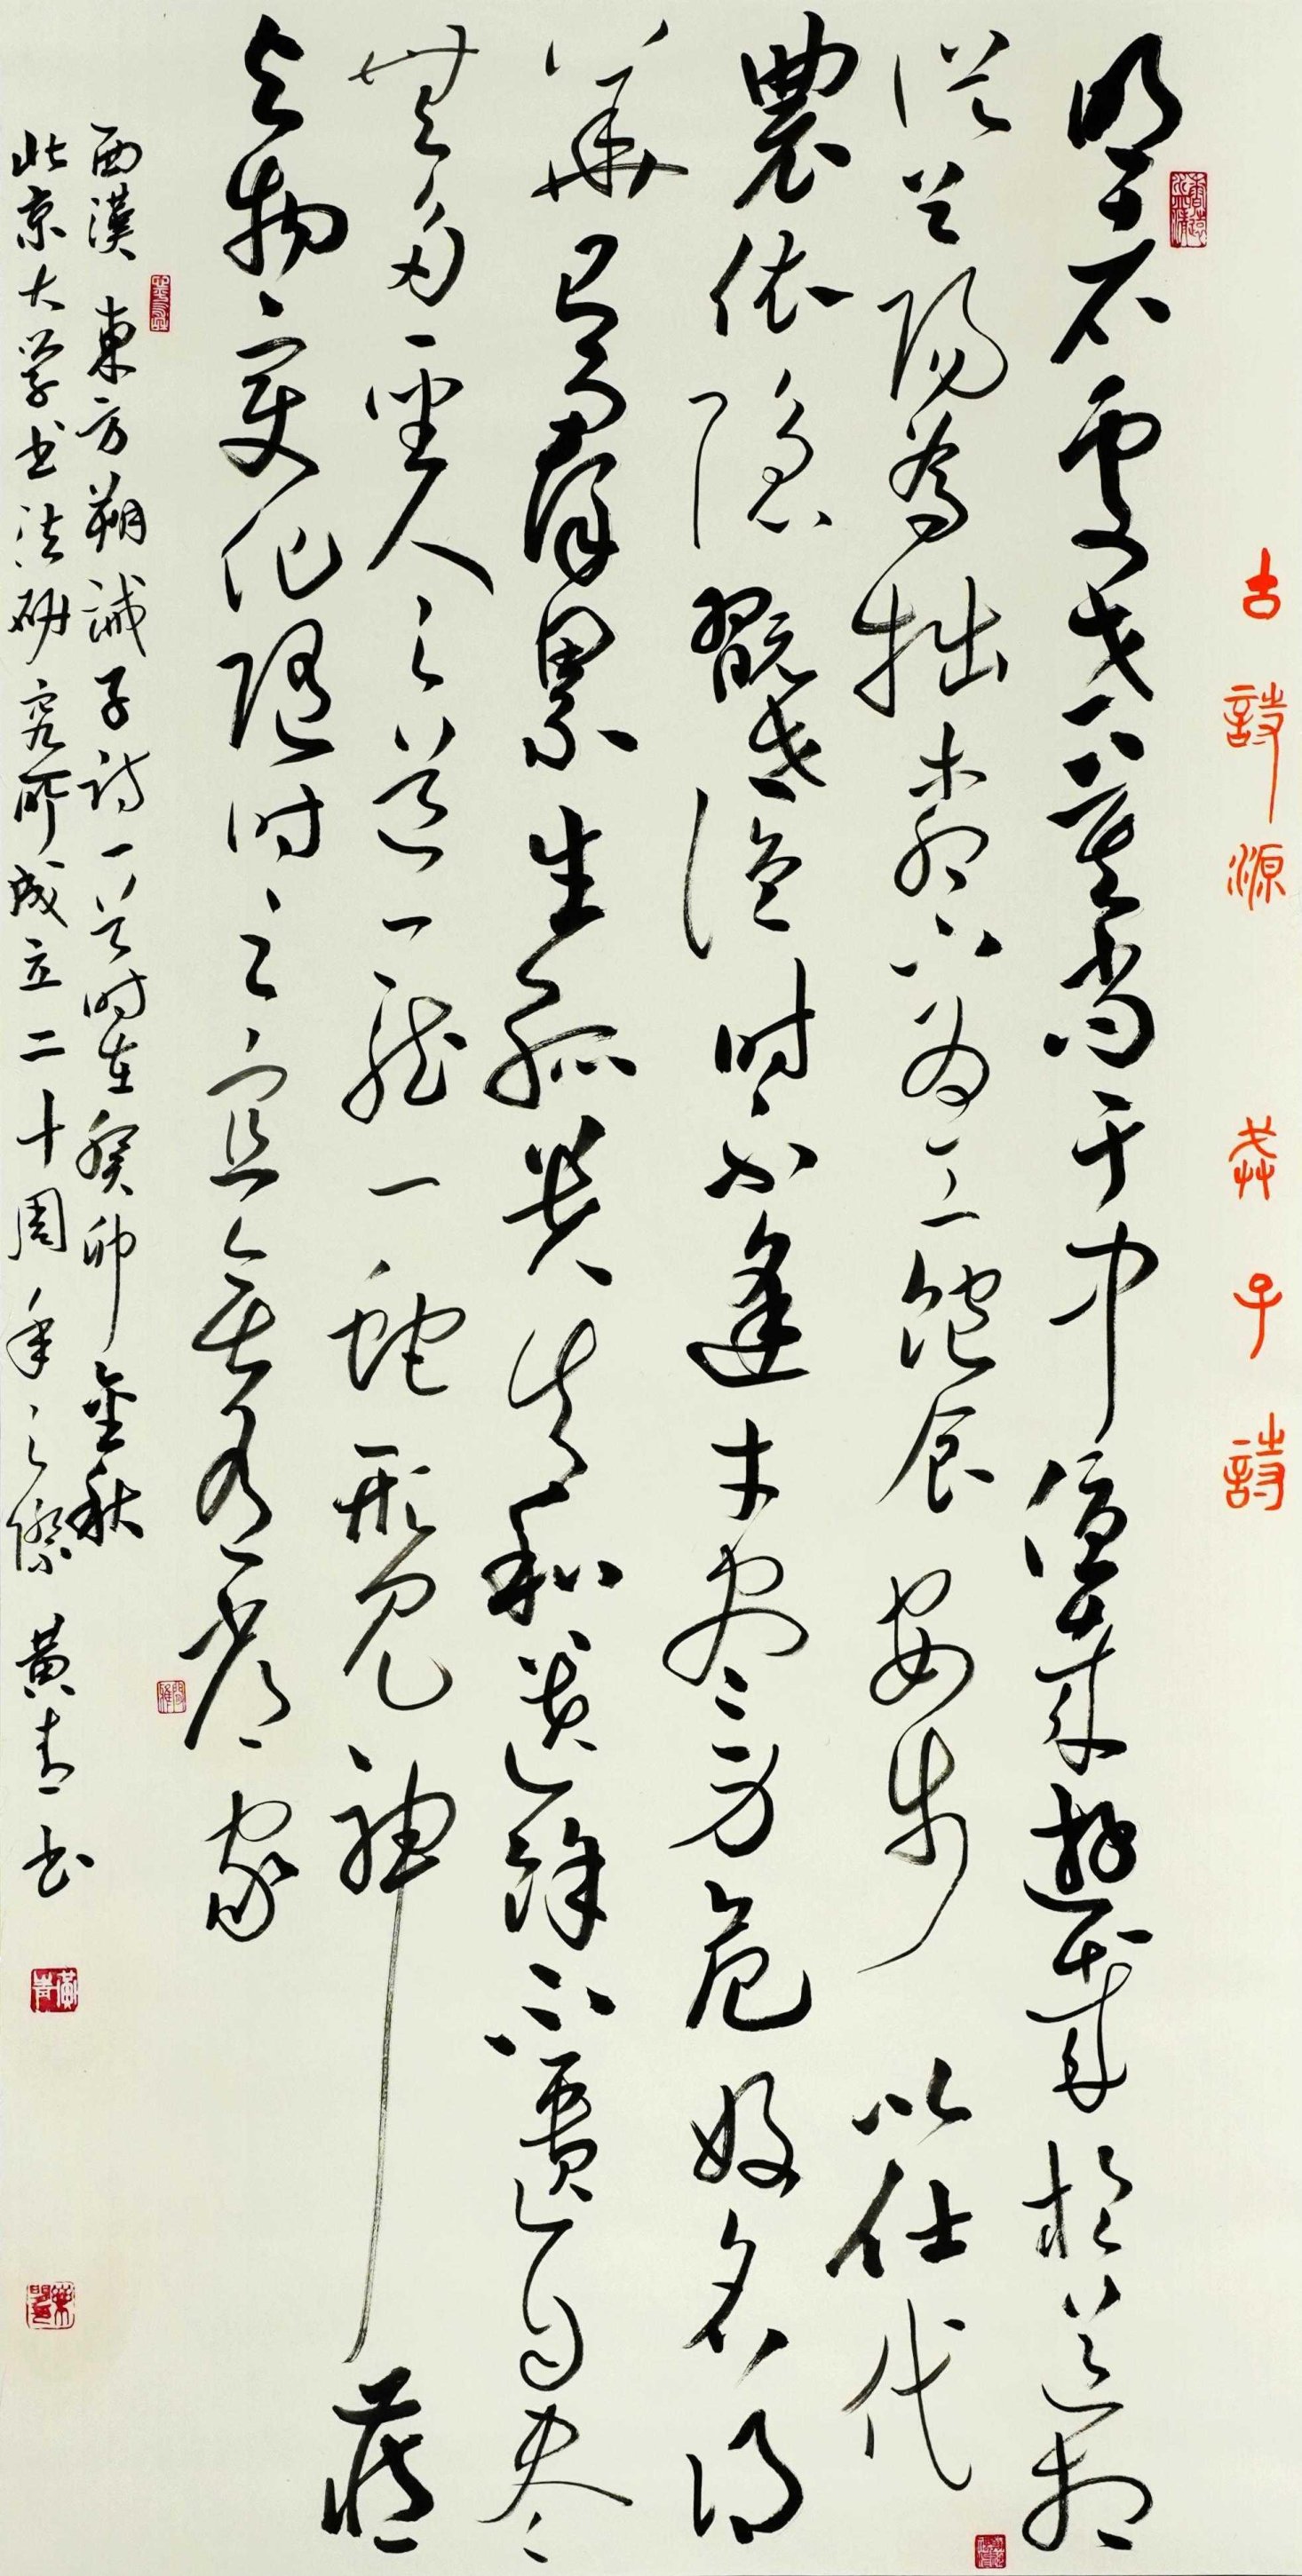 古詩源 誡子詩
明者處世莫尚于中優哉遊哉於道相
從首陽為拙柳惠為工飽食安步以仕代
農依隱翫世詭時不逢才盡身危好名得
華有群累生孤貴失和遺餘不匱自盡
無多聖人之道一龍一蛇形見神藏
與物變化隨時之宜無有常家
西漢東方朔誡子詩一首時在癸卯金秋
北京大學书法研究所成立二十周年之際 黃青书
黃青